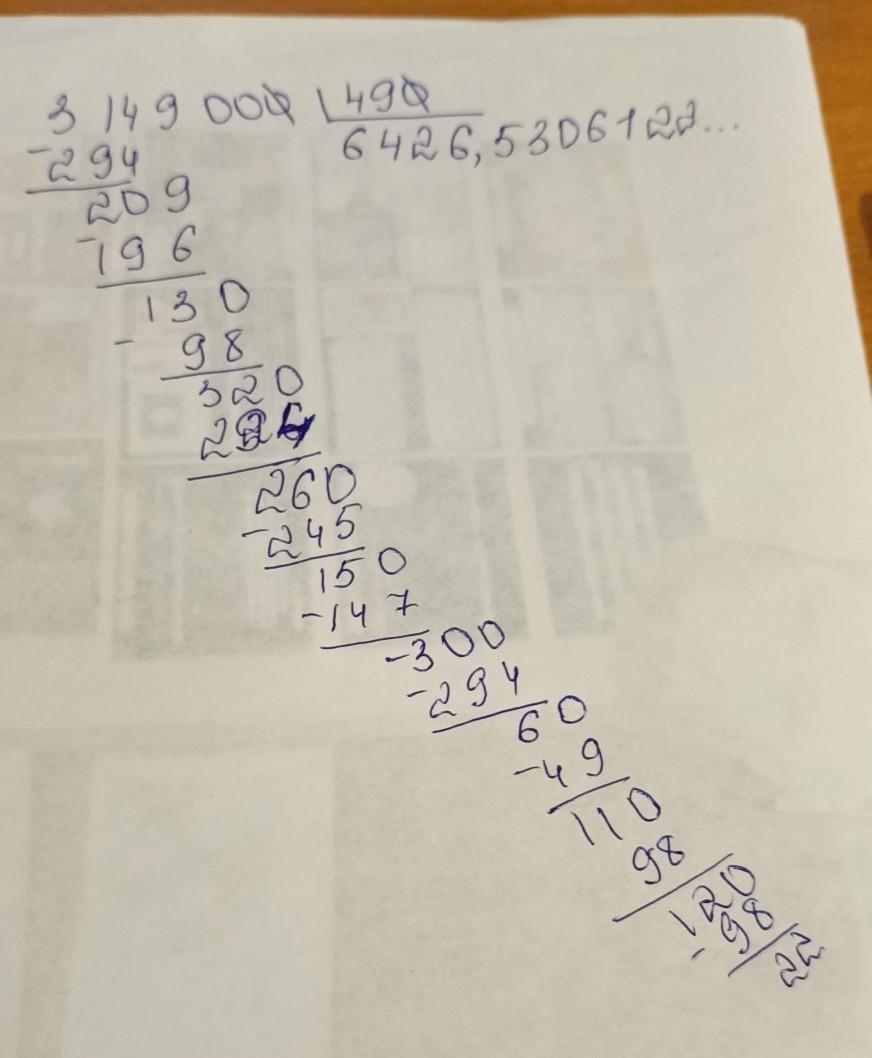 3 149 000 490
-294 6426,53061122...
209
-196
130
- 98
320
294
260
-245
150
-147
-300
-294
60
-49
110
98
120
-98
22